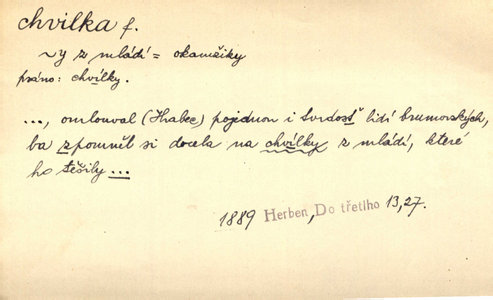 chvilka f.
~y z mládí = okamžiky
psáno: chvílky.
..., omlouval (Hrabec) pojednou i tvrdosť lidí brumovských,
ba zpomněl si docela na chvílky z mládí, které
ho těšily ...
1889 Herben, Do třetího 13,27.